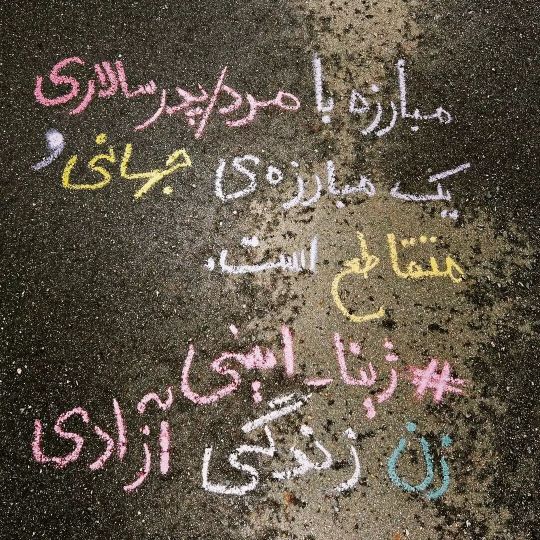 مبارزه با مرد/پدرسالاری
یک مبارزه‌ی جهانی و
متقاطع است.
#ژینا_امینی
زن زندگی آزادی